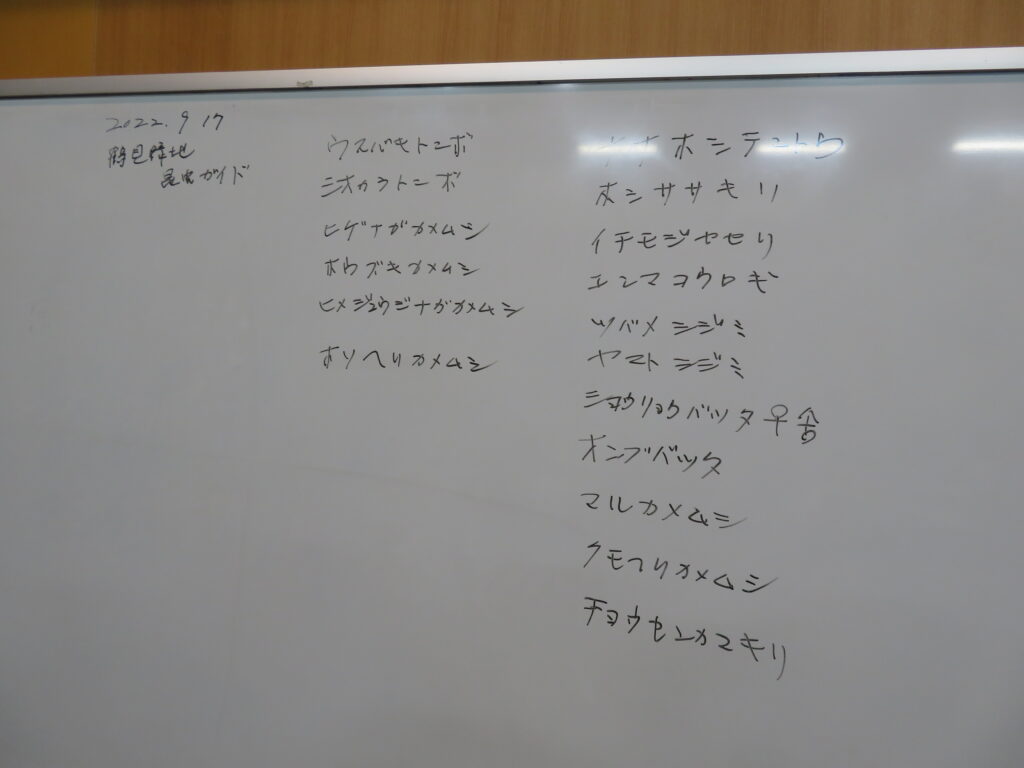 2022.9 17
鶴見緑地
昆虫ガイド
ウスバキトンボ
シオカラトンボ
ヒゲナガカメムシ
ホウズキカメムシ
ヒメジュウジナガカメムシ
ホソヘリカメムシ
ナナホシテントウ
ホシササキリ
イチモジセセリ
エンマコウロギ
ツバメシジミ
ヤマトシジミ
ショウリョウバッタ♀
オンブバッタ
マルカメムシ
クモヘリカメムシ
チョウセンカマキリ